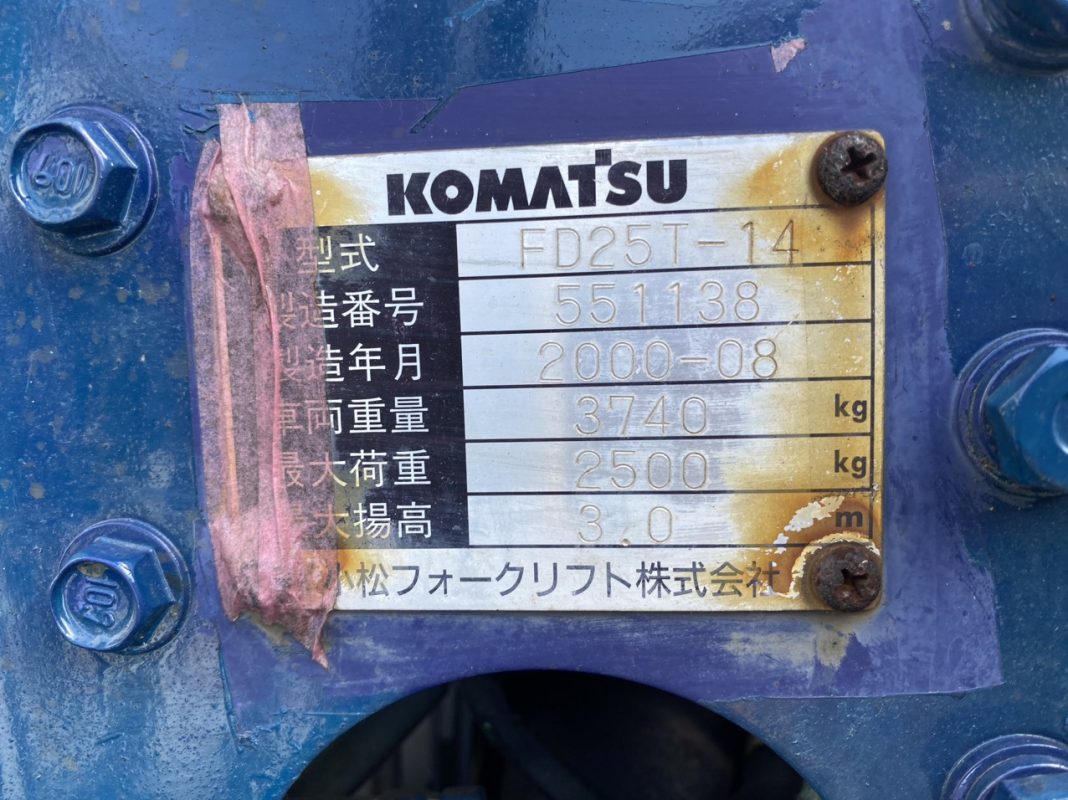 KOMATSU
型式 FD25T-14
製造番号 551138
製造年月 2000-08
車両重量 3740 kg
最大荷重 2500 kg
最大揚高 3.0 m
小松フォークリフト株式会社